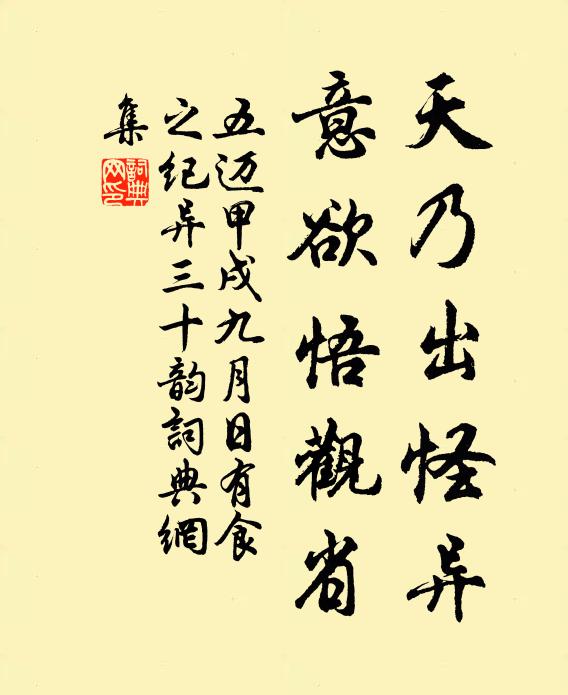 天乃出怪异
意欲悟觀省
五迈甲戌九月日有食
之纪异三十韵詞典網
集
詞典
网印